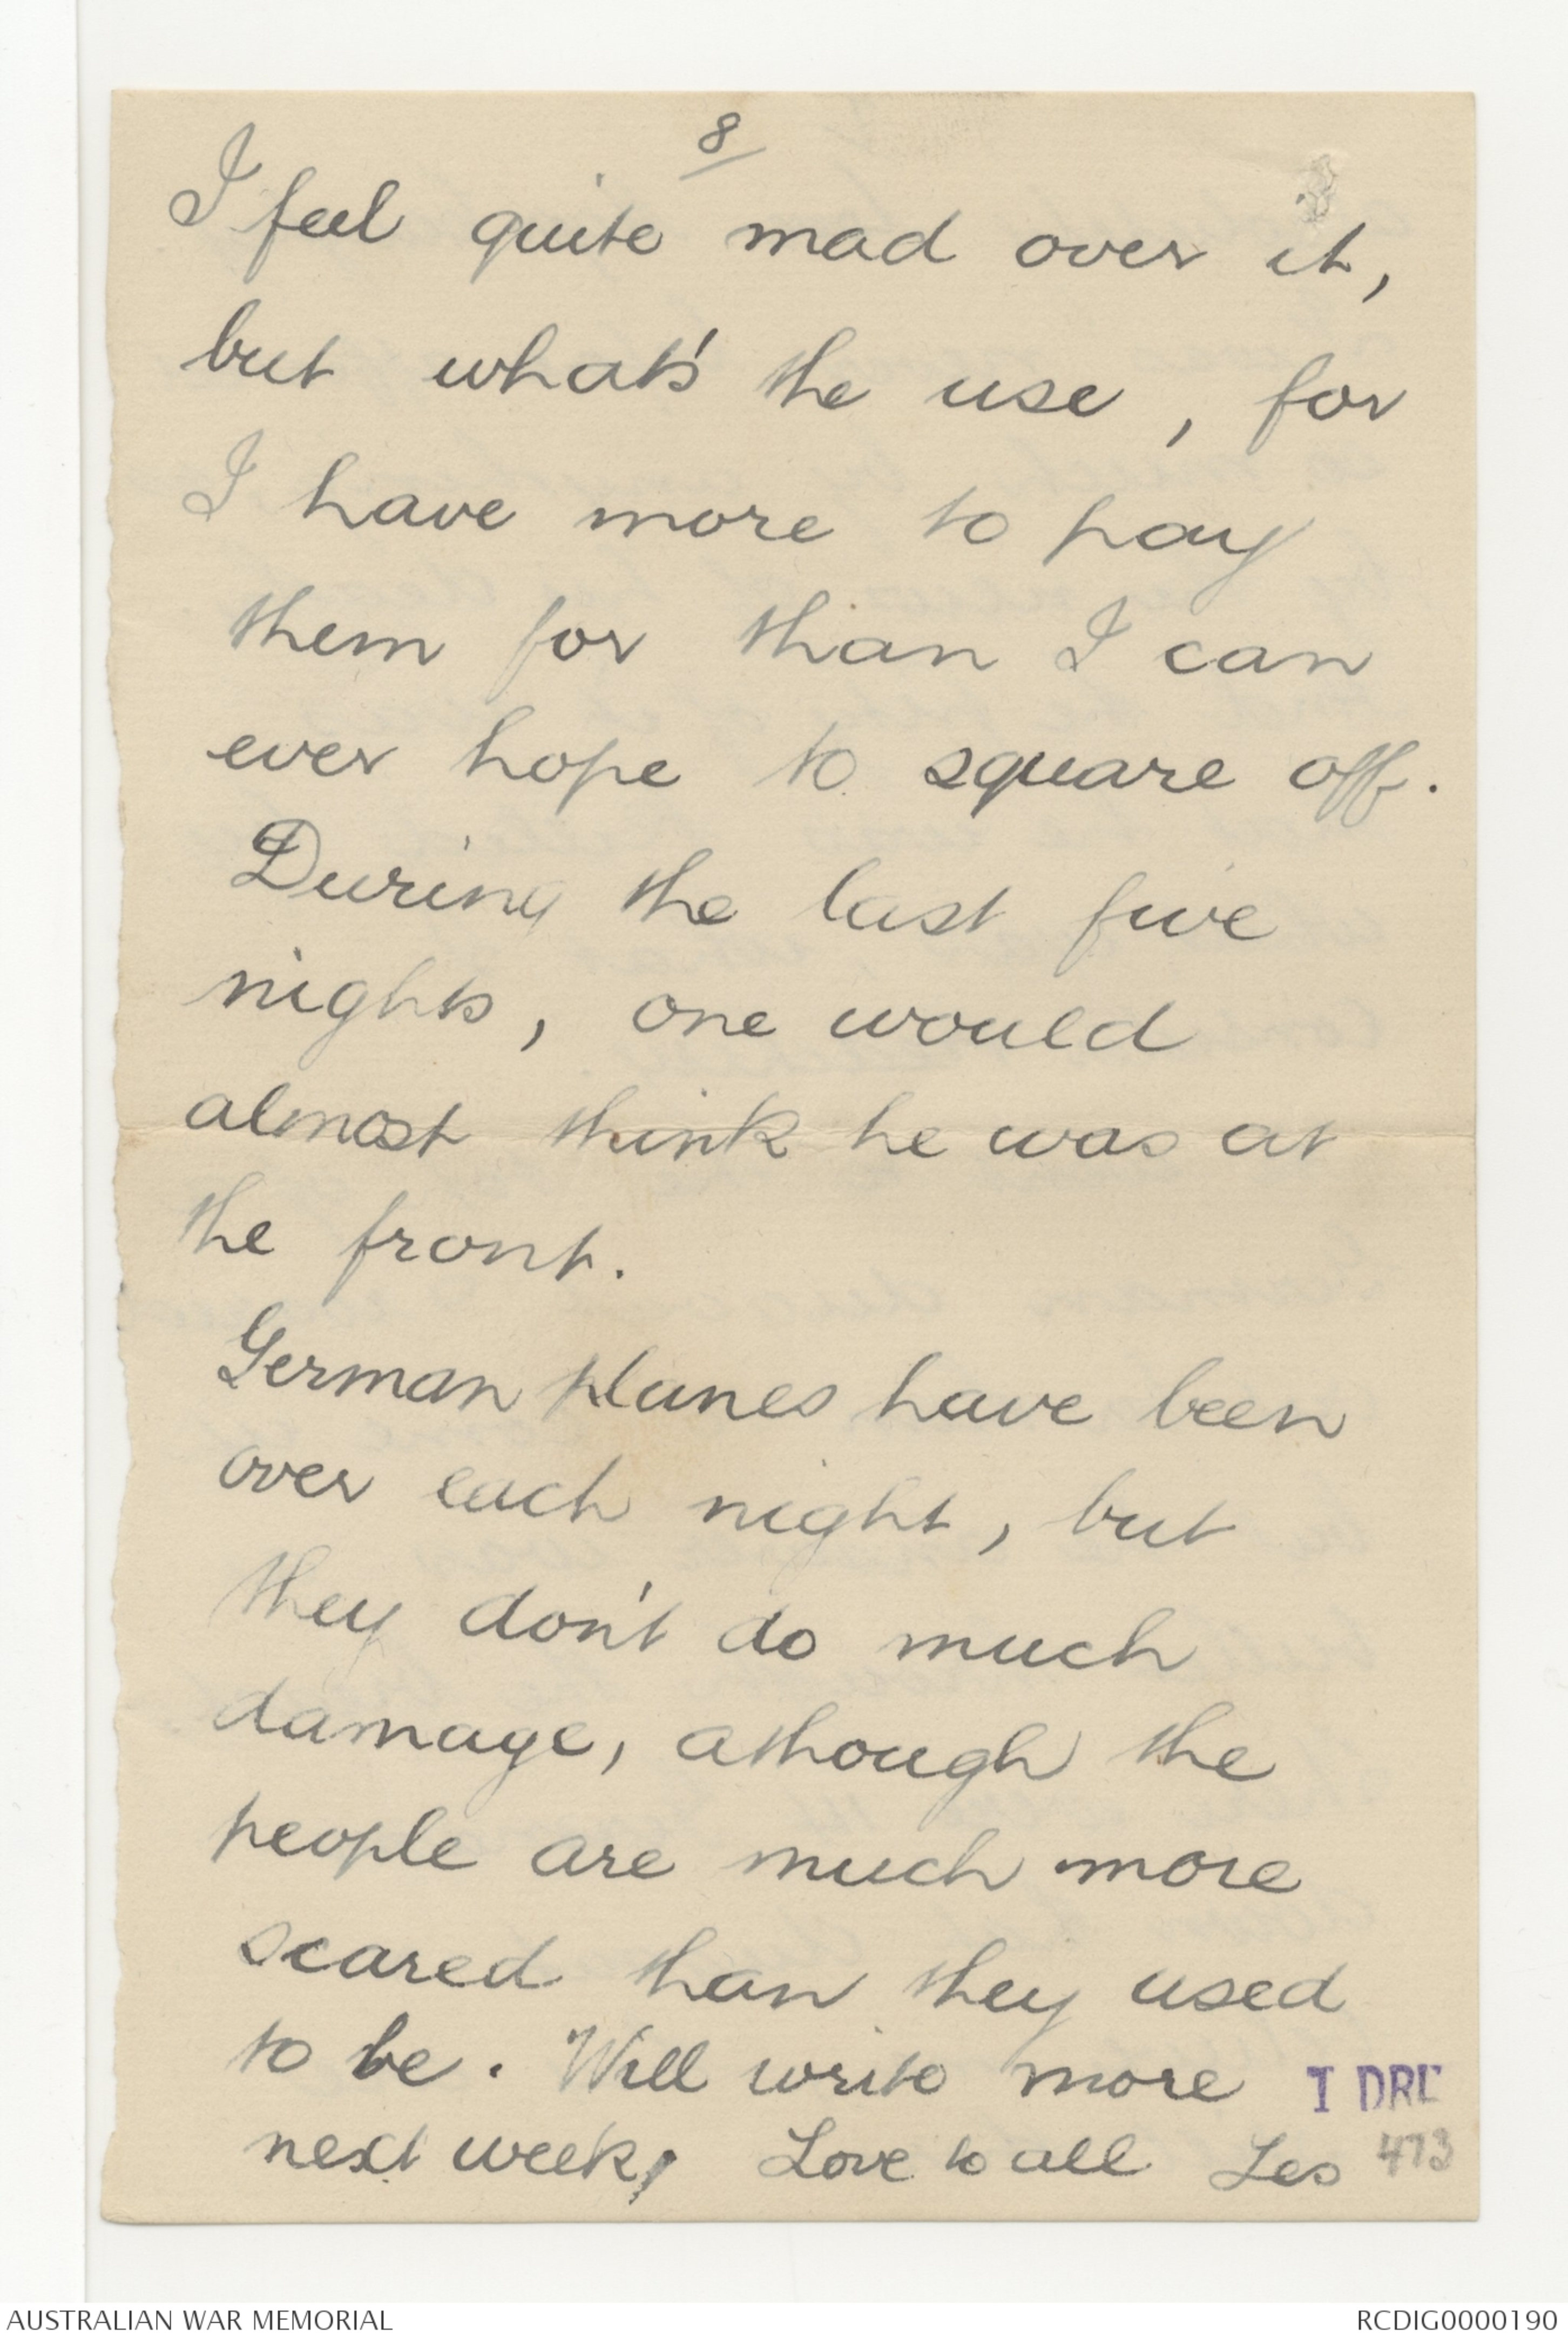 8
I feel quite mad over it,
but what's the use, for
I have more to pay
them for than I can
ever hope to square off.
During the last five
nights, one would
almost think he was at
the front.
German planes have been
over each night, but
they don't do much
damage, athough the
people are much more
scared than they used
to be. Will write more
next week, Love to all Les
I DRL
473
AUSTRALIAN WAR MEMORIAL
RCDIG0000190